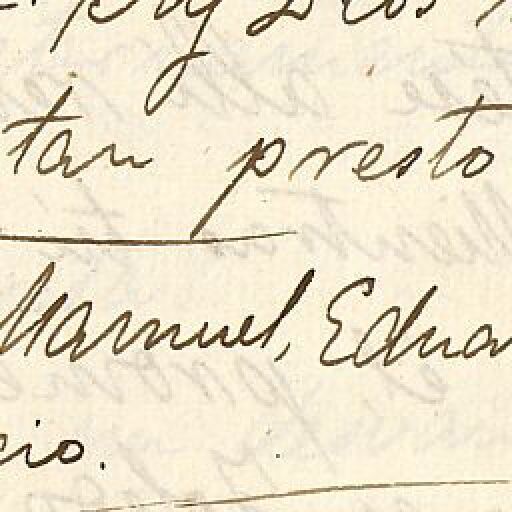 Dios
tan presto
Manuel, Edua
cio.